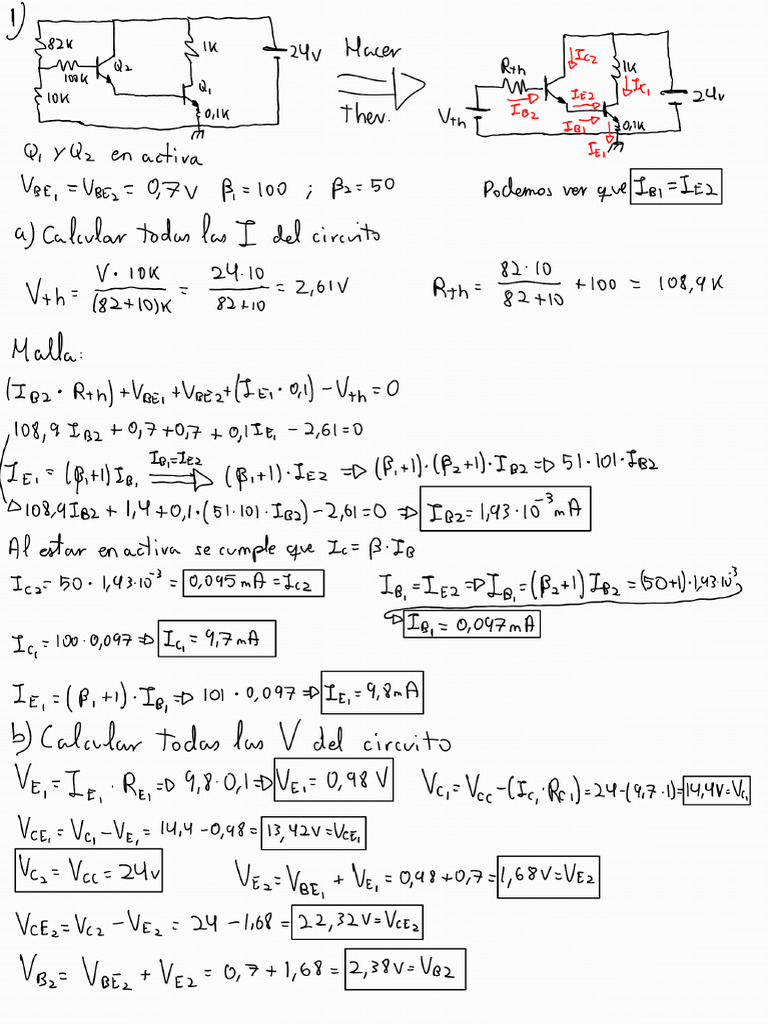 1)
82K
100K
10K
Q2
1K
Q1
0,1K
24V
Hacer
thev.
Rth
Vth
IB2
IC2
IE2
IB1
IE1
1K
IC1
0,1K
24V
Q1 y Q2 en activa
VBE1 = VBE2 = 0,7V β1 = 100 ; β2 = 50
Podemos ver que IB1 = IE2
a) Calcular todas las I del circuito
Vth = V · 10K / (82+10)K = 24·10 / 82+10 = 2,61V
Rth = 82·10 / 82+10 + 100 = 108,9K
Malla:
(IB2 · Rth) + VBE1 + VBE2 + (IE1 · 0,1) - Vth = 0
108,9 IB2 + 0,7 + 0,7 + 0,1 IE1 - 2,61 = 0
IE1 = (β1+1) IB1 IB1=IE2 ⇒ (β1+1) · IE2 ⇒ (β1+1)·(β2+1)·IB2 ⇒ 51·101·IB2
108,9 IB2 + 1,4 + 0,1·(51·101·IB2) - 2,61 = 0 ⇒ IB2 = 1,93·10⁻³ mA
Al estar en activa se cumple que Ic = β·IB
IC2 = 50 · 1,93·10⁻³ = 0,095 mA = IC2
IB1 = IE2 ⇒ IB1 = (β2+1) IB2 = (50+1)·1,93·10⁻³
⇒ IB1 = 0,097mA
IC1 = 100·0,097 ⇒ IC1 = 9,7mA
IE1 = (β1+1)·IB1 ⇒ 101·0,097 ⇒ IE1 = 9,8mA
b) Calcular todas las V del circuito
VE1 = IE1 · RE1 ⇒ 9,8·0,1 ⇒ VE1 = 0,98 V
VC1 = VCC - (IC1·RC1) = 24 - (9,7·1) = 14,4V = VC1
VCE1 = VC1 - VE1 = 14,4 - 0,98 = 13,42V = VCE1
VC2 = VCC = 24V
VE2 = VBE1 + VE1 = 0,98 + 0,7 = 1,68V = VE2
VCE2 = VC2 - VE2 = 24 - 1,68 = 22,32V = VCE2
VB2 = VBE2 + VE2 = 0,7 + 1,68 = 2,38V = VB2